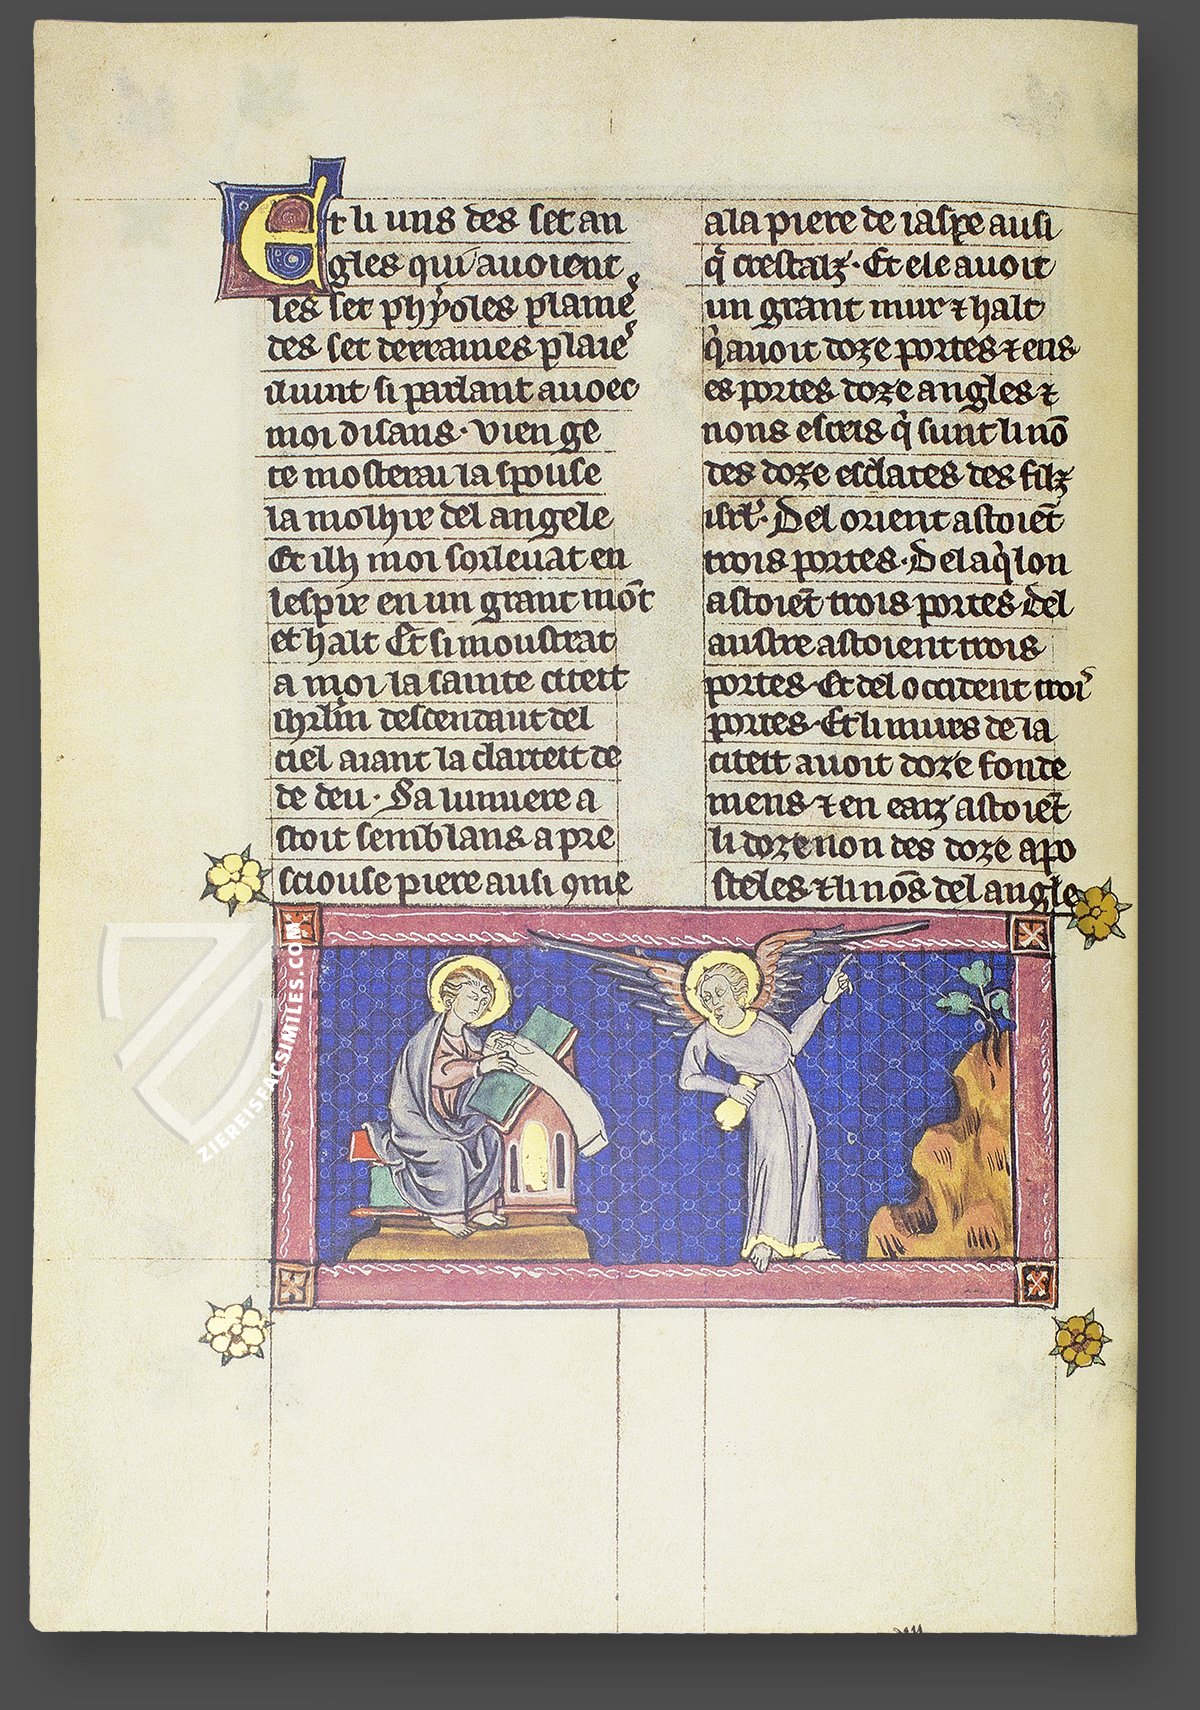 Et li uns des set an
gles qui auoient
les set phyoles plaines
des set derraines plaies
il uint si parlant auoec
moi disans· vien ge
te mosterai la spouse
la molhir del angele
Et ilh moi sorleuat en
lespir en un grant mōt
et halt Et si moustrat
a moi la sainte citeit
ihrlm̄ descendant del
ciel aiant la clarteit de
de deu· Sa lumiere a
stoit semblans a pre
sciouse piere ausi ꝯme
a la piere de iaspe ausi
q̄ crestalz· Et ele auoit
un grant mur ⁊ halt
q̄ auoit doze portes ⁊ ens
es portes doze angles ⁊
nons escris q̄ sunt li nō
des doze esclates des filz
isrl̄· Del orient astoiēt
trois portes· Del aq̄lon
astoiēt trois portes Del
austre astoient trois
portes· Et del occident trois
portes· Et li murs de la
citeit auoit doze fonde
mens· ⁊ en earz astoiēt
li doze non des doze apo
steles ⁊ li nōs del angle
ZIEREISFACSIMILES.COM